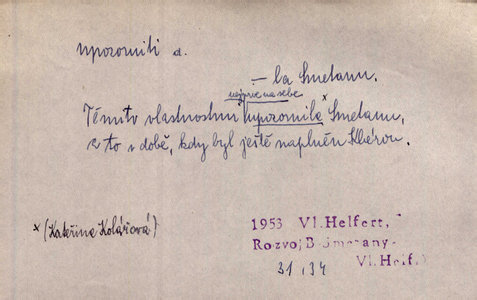 upozorniti d.
– la Smetanu.
nejprve na sebe
Těmito vlastnostmi upozornila x Smetanu,
a to v době, kdy byl ještě naplněn Klárou.
x (Kateřina Kolářová)
1953 Vl. Helfert,
Rozvoj B. Smetany
Vl. Helf.
31, 34